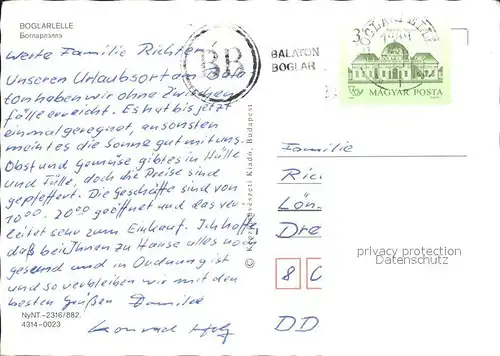 BOGLARLELLE
Богларлелле
Werte Familie Richter
Unseren Urlaubsort am Bala
ton haben wir ohne Zwischen
fälle erreicht. Es hat bis jetzt
einmal geregnet, ansonsten
meint es die Sonne gut mit uns.
Obst und Gemüse gibt es in Hülle
und Fülle, doch die Preise sind
gepfeffert. Die Geschäfte sind von
10⁰⁰ - 20⁰⁰ geöffnet und das ver-
leitet sehr zum Einkauf. Ich hoffe,
daß bei Ihnen zu Hause alles noch
gesund und in Ordnung ist
und so verbleiben wir mit den
besten Grüßen Familie
Konrad
NyNT.-2316/882.
4314-0023
© Képzőművészeti Kiadó, Budapest
BR
BALATON
BOGLAR
BOGLARLELLE
3
MAGYAR POSTA
Familie
Ric
Lön.
Dre
8
DD
privacy protection
Datenschutz